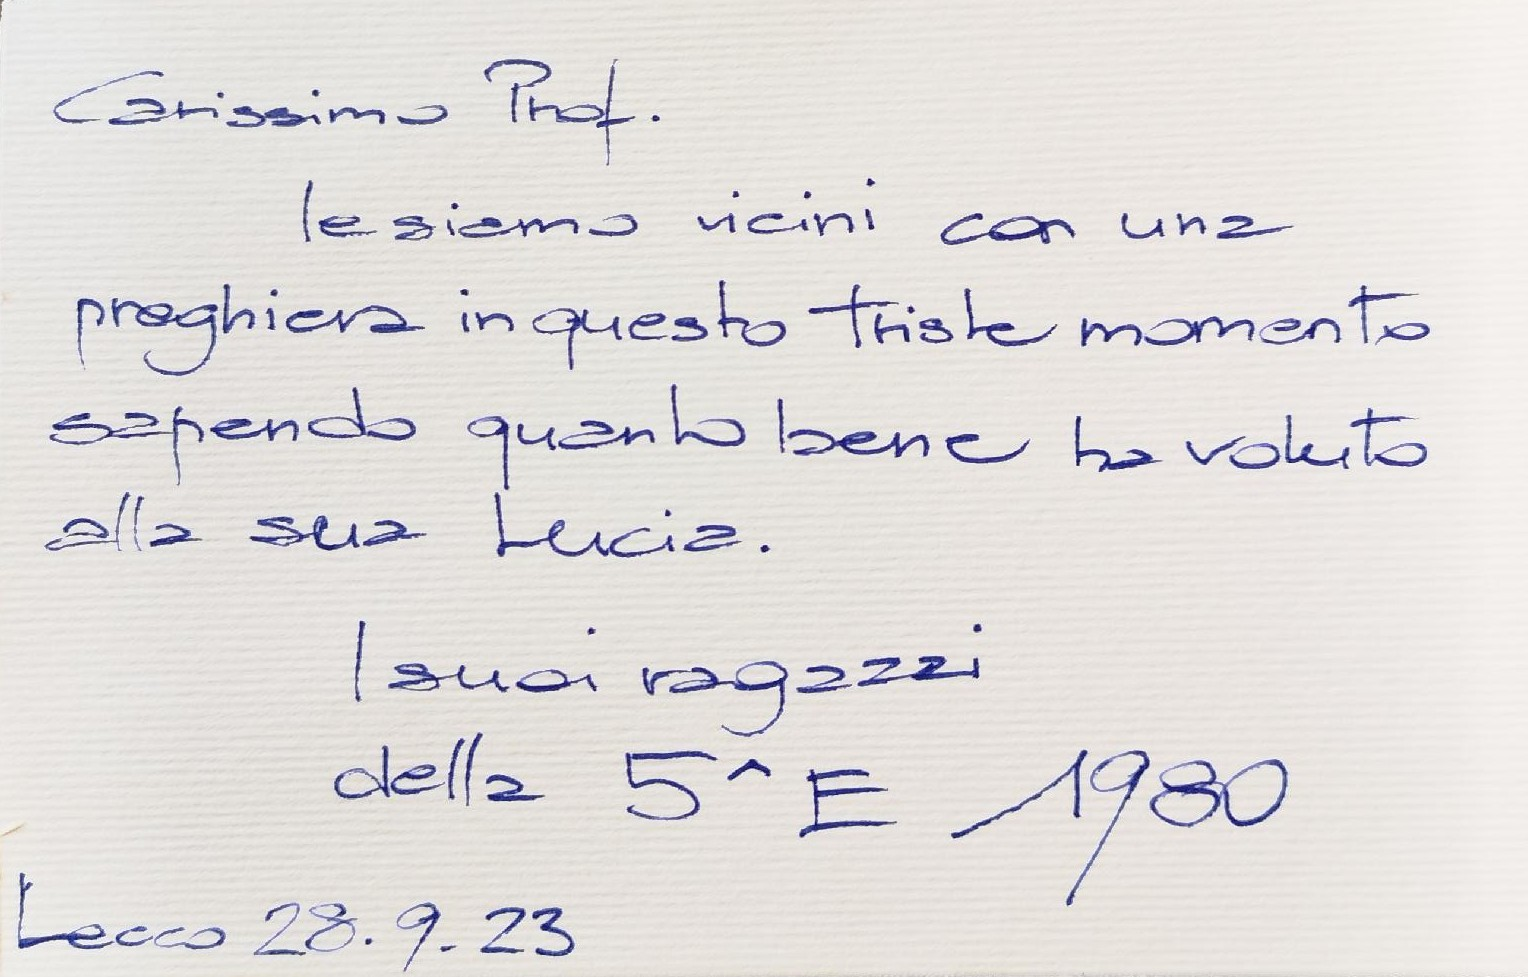 Carissimo Prof.
le siamo vicini con una
preghiera in questo triste momento
sapendo quanto bene ha voluto
alla sua Lucia.
I suoi ragazzi
della 5^ E 1980
Lecco 28.9.23